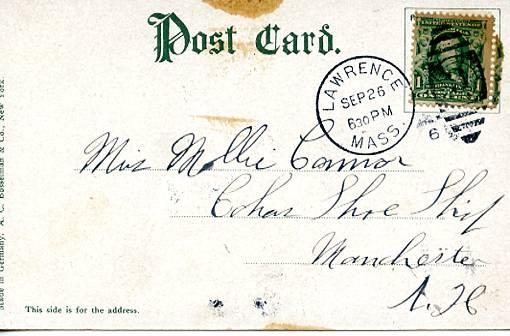 Post Card.
UNITED STATES OF
FRANKLIN
1
LAWRENCE
SEP 26
630 PM
MASS.
6
Miss Mollie Connor
Cohas Shoe Shop
Manchester
N. H
This side is for the address.
Made in Germany. A. C. Bosselman & Co., New York.